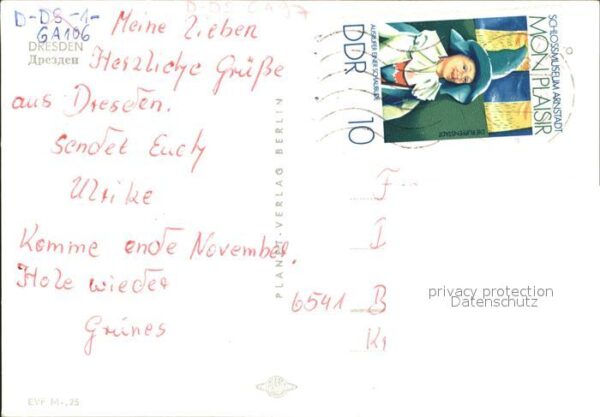 D-DS-1-
GA106
D-DS GA97
DRESDEN
Дрезден
Meine Lieben
Herzliche Grüße
aus Dresden.
sendet Euch
Ulrike
Komme ende November
Hole wieder
Grünes
EVP M -,25
PLANET-VERLAG BERLIN
SCHLOSSMUSEUM ARNSTADT
MON PLAISIR
DIE PUPPENSTADT
AUSRUFER EINER SCHAUBUDE
DDR 10
F
I
6541 B
Ki
privacy protection
Datenschutz